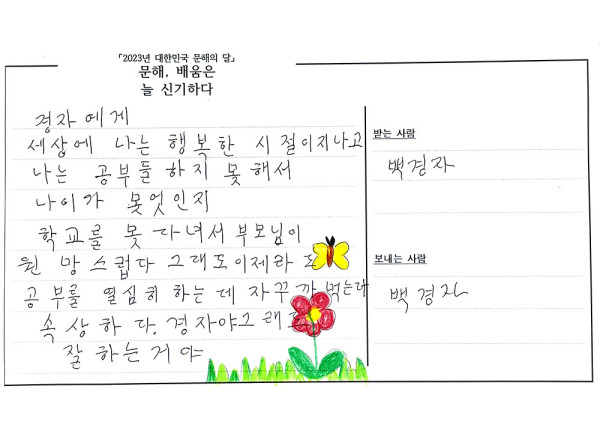 「2023년 대한민국 문해의 달」
문해, 배움은
늘 신기하다
경자에게
세상에 나는 행복한 시절이지나고
나는 공부를 하지 못해서
나이가 못엇인지
학교를 못 다녀서 부모님이
원망스럽다 그래도이제라도
공부를 열심히 하는데 자꾸까먹는다
속상하다. 경자야그래
잘하는거야
받는 사람
백경자
보내는 사람
백경자